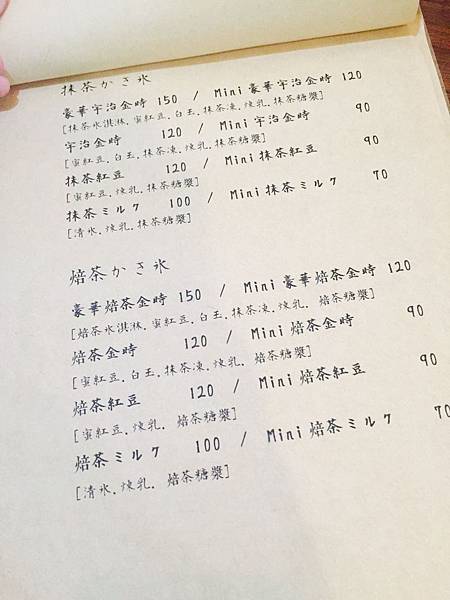 抹茶かき氷
豪華宇治金時 150 / Mini豪華宇治金時 120
[抹茶冰淇淋.蜜紅豆.白玉.抹茶凍.煉乳.抹茶糖漿]
宇治金時 120 / Mini宇治金時 90
[蜜紅豆.白玉.抹茶凍.煉乳.抹茶糖漿]
抹茶紅豆 120 / Mini抹茶紅豆 90
[蜜紅豆.煉乳.抹茶糖漿]
抹茶ミルク 100 / Mini抹茶ミルク 70
[清冰.煉乳.抹茶糖漿]
焙茶かき氷
豪華焙茶金時 150 / Mini豪華焙茶金時 120
[焙茶冰淇淋.蜜紅豆.白玉.抹茶凍.煉乳. 焙茶糖漿]
焙茶金時 120 / Mini焙茶金時 90
[蜜紅豆.白玉.抹茶凍.煉乳. 焙茶糖漿]
焙茶紅豆 120 / Mini焙茶紅豆 90
[蜜紅豆.煉乳. 焙茶糖漿]
焙茶ミルク 100 / Mini焙茶ミルク 70
[清冰.煉乳. 焙茶糖漿]